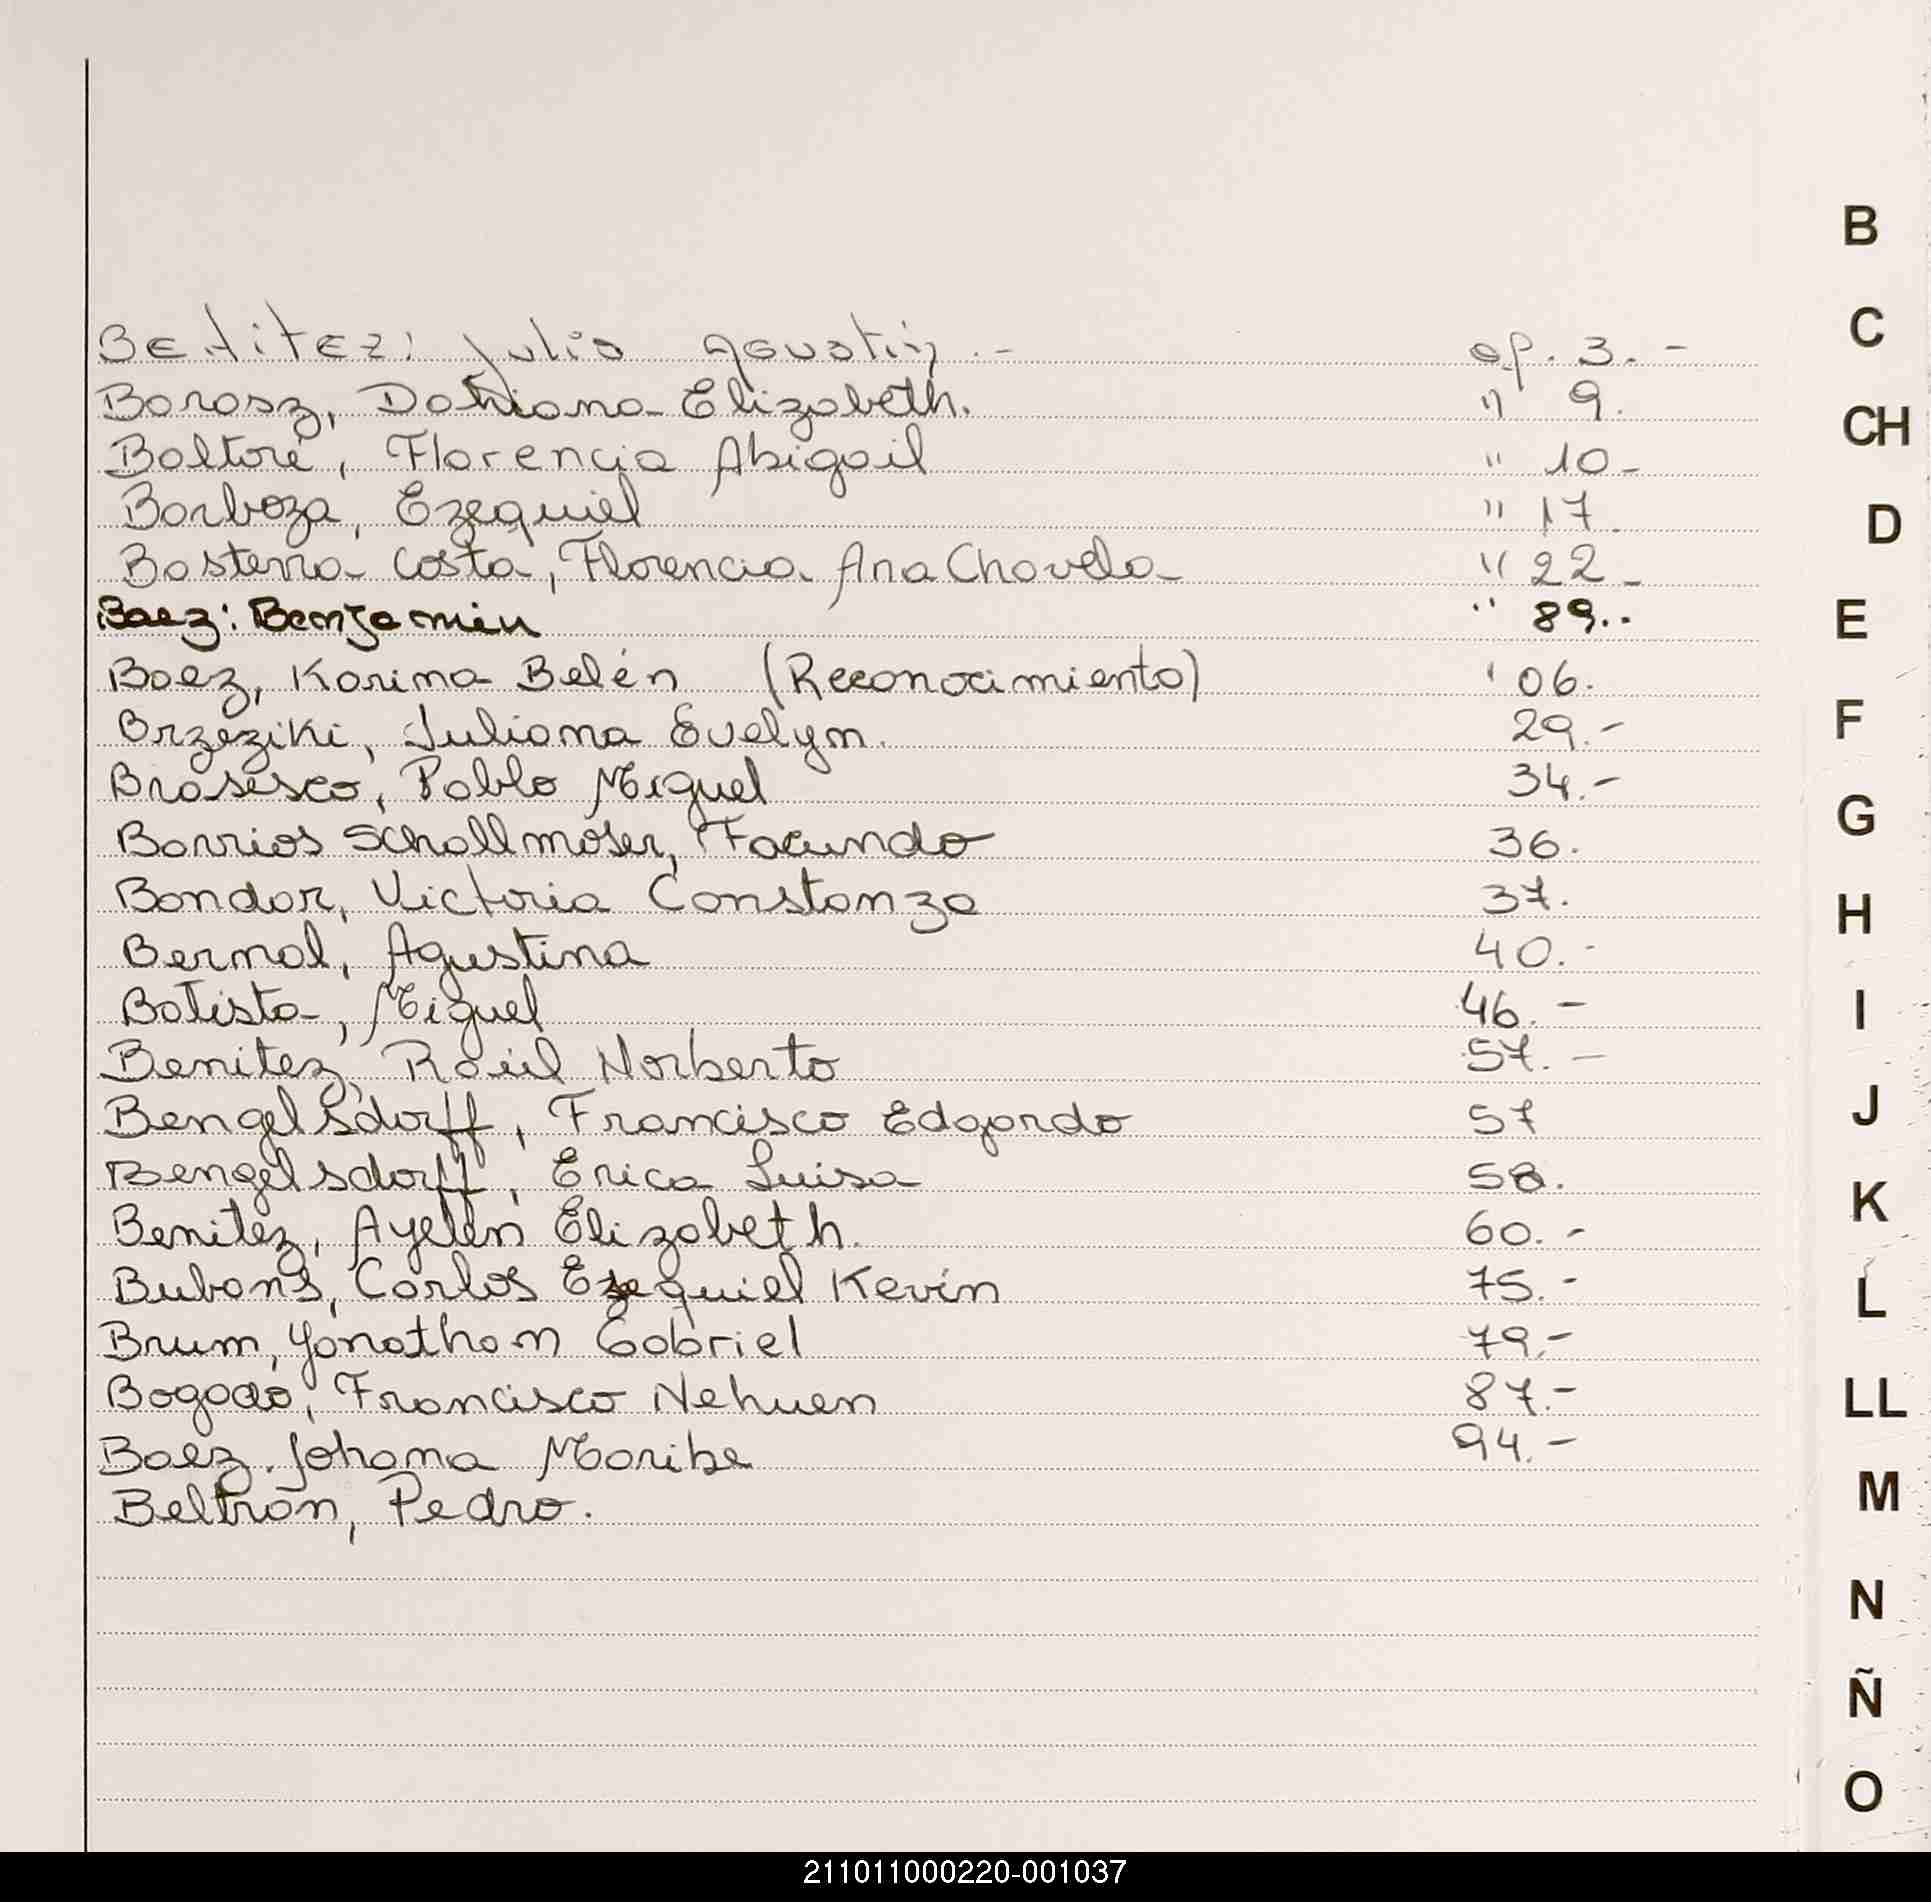 Benitez: Julio Agustin.- ap. 3.-
Barasz, Dahiana Elizabeth. " 9.
Baltoré, Florencia Abigail " 10-
Barboza, Ezequiel " 17.
Basterra Costa, Florencia Ana Chavela " 22-
Baez: Benjamin " 89..
Baez, Karina Belén (Reconocimiento) ' 06.
Brzeziki, Juliana Evelyn. 29.-
Brasesco, Pablo Miguel 34.-
Barrios Schallmoser, Facundo 36.
Bondar, Victoria Constanza 37.
Bernal, Agustina 40.-
Batista, Miguel 46.-
Benitez, Raúl Norberto 57.-
Bengelsdorff, Francisco Edgardo 57
Bengelsdorff, Erica Luisa 58.
Benitez, Ayelén Elizabeth. 60.-
Bubans, Carlos Ezequiel Kevin 75.-
Brum, Yonathan Gabriel 79.-
Bogado, Francisco Nehuen 87.-
Baez, Johana Maribe 94.-
Beltrán, Pedro.
B
C
CH
D
E
F
G
H
I
J
K
L
LL
M
N
Ñ
O
211011000220-001037